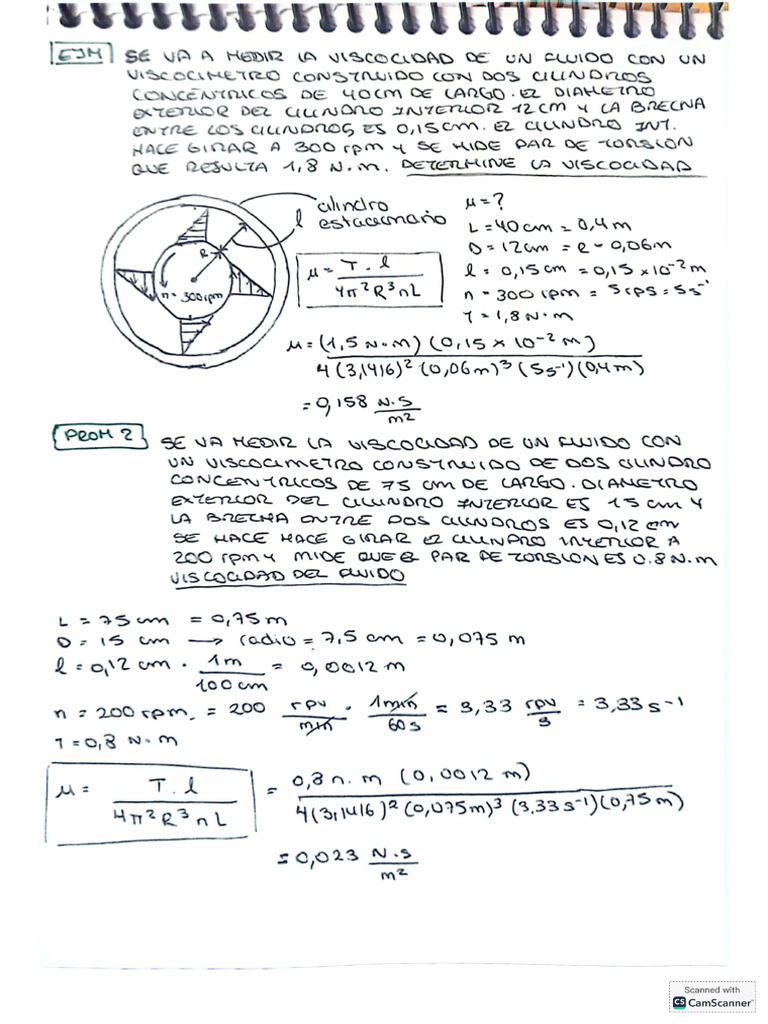 EJM SE VA A MEDIR LA VISCOCIDAD DE UN FLUIDO CON UN
VISCOCIMETRO CONSTRUIDO CON DOS CILINDROS
CONCÉNTRICOS DE 40 CM DE LARGO. EL DIAMETRO
EXTERIOR DEL CILINDRO INTERIOR 12 cm Y LA BRECHA
ENTRE LOS CILINDROS ES 0,15 cm. EL CILINDRO INT.
HACE GIRAR A 300 rpm Y SE MIDE PAR DE TORSION
QUE RESULTA 1,8 N.m. DETERMINE LA VISCOCIDAD
cilindro
estacionario
l
R
n = 300 rpm
μ = T . l / 4π²R³nL
μ = ?
L = 40 cm = 0,4 m
D = 12 cm = R - 0,06 m
l = 0,15 cm = 0,15 × 10⁻² m
n = 300 rpm = 5 rps = 5 s⁻¹
T = 1,8 N.m
μ = (1,5 N.m) (0,15 × 10⁻² m) / 4 (3,1416)² (0,06m)³ (5 s⁻¹) (0,4 m)
= 0,158 N.S / m²
PROM 2 SE VA MEDIR LA VISCOCIDAD DE UN FLUIDO CON
UN VISCOCIMETRO CONSTRUIDO DE DOS CILINDRO
CONCENTRICOS DE 75 cm DE LARGO. DIAMETRO
EXTERIOR DEL CILINDRO INTERIOR ES 15 cm Y
LA BRECHA ENTRE DOS CILINDROS ES 0,12 cm
SE HACE HACE GIRAR EL CILINDRO INTERIOR A
200 rpm Y MIDE QUE EL PAR DE TORSION ES 0.8 N.m
VISCOCIDAD DEL FLUIDO
L = 75 cm = 0,75 m
D = 15 cm → radio = 7,5 cm = 0,075 m
l = 0,12 cm . 1m / 100 cm = 0,0012 m
n = 200 rpm. = 200 rpv / min . 1 min / 60 s = 3,33 rpv / s = 3,33 s⁻¹
T = 0,8 N.m
μ = T . l / 4π²R³nL = 0,8 n. m (0,0012 m) / 4 (3,1416)² (0,075m)³ (3,33 s⁻¹) (0,75 m)
= 0,023 N.S / m²
Scanned with
CS CamScanner